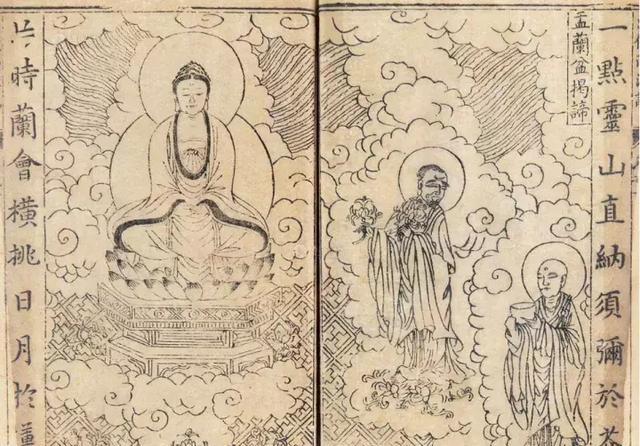 一點靈山直納須彌於
盂蘭盆揭諦
時蘭會橫挑日月於